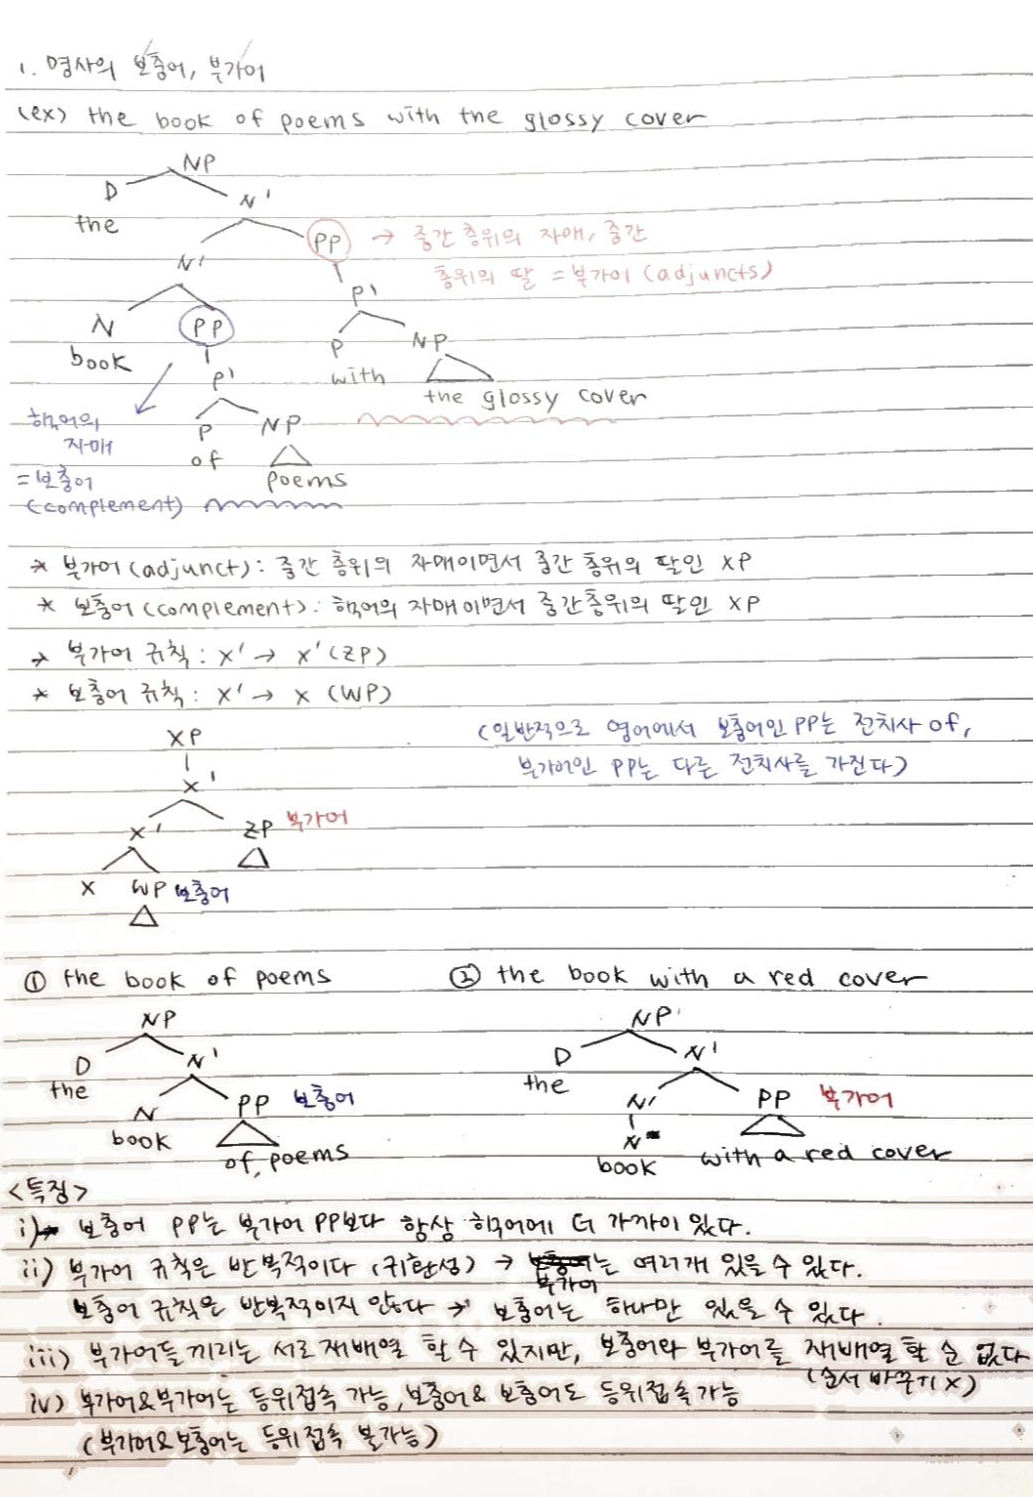 1. 명사의 보충어, 부가어
(ex) the book of poems with the glossy cover
NP
D N'
the
N' PP → 중간 층위의 자매, 중간
층위의 딸 = 부가어 (adjuncts)
P'
N PP
book
P NP
with
the glossy cover
P'
P NP
of
poems
핵어의
자매
= 보충어
(complement)
* 부가어 (adjunct) : 중간 층위의 자매이면서 중간 층위의 딸인 XP
* 보충어 (complement) : 핵어의 자매이면서 중간층위의 딸인 XP
* 부가어 규칙 : X' → X' (ZP)
* 보충어 규칙 : X' → X (WP)
(일반적으로 영어에서 보충어인 PP는 전치사 of,
부가어인 PP는 다른 전치사를 가진다)
XP
X'
X' ZP 부가어
X WP 보충어
① the book of poems ② the book with a red cover
NP NP
D N' D N'
the the
N PP 보충어 N' PP 부가어
book of poems N with a red cover
book
<특징>
i) 보충어 PP는 부가어 PP보다 항상 핵어에 더 가까이 있다.
ii) 부가어 규칙은 반복적이다 (귀환성) → 부가어는 여러개 있을 수 있다.
보충어 규칙은 반복적이지 않다 → 보충어는 하나만 있을 수 있다.
iii) 부가어들끼리는 서로 재배열 할 수 있지만, 보충어와 부가어를 재배열 할 순 없다
(순서 바꾸기 X)
iv) 부가어&부가어는 등위접속 가능, 보충어& 보충어도 등위접속가능
(부가어&보충어는 등위접속 불가능)